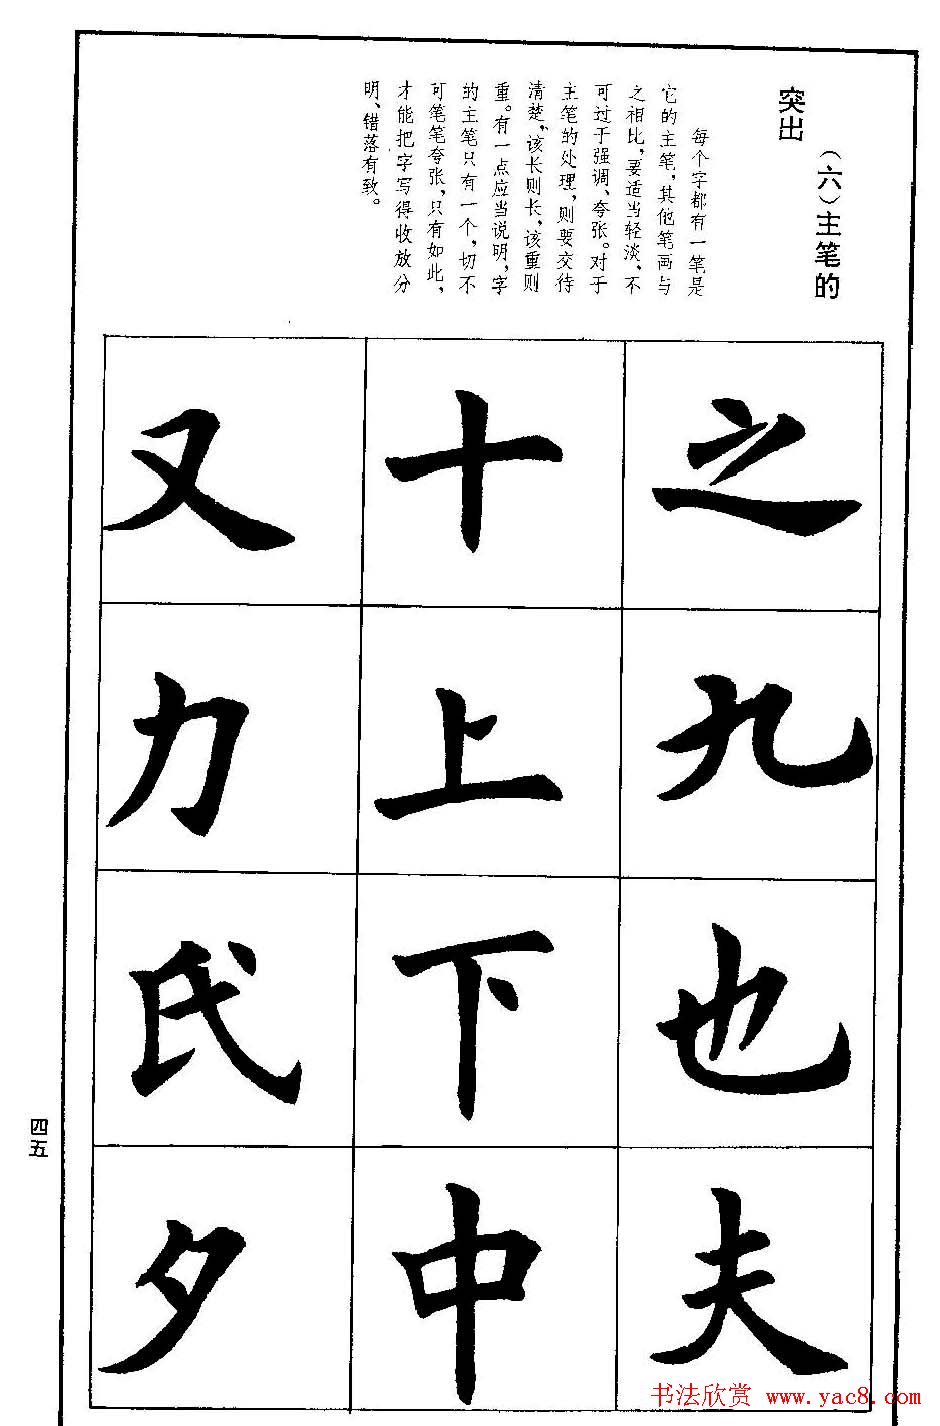 （六）主笔的
突出
每个字都有一笔是
它的主笔，其他笔画与
之相比，要适当轻淡、不
可过于强调、夸张。对于
主笔的处理，则要交待
清楚，该长则长，该重则
重。有一点应当说明，字
的主笔只有一个，切不
可笔笔夸张，只有如此，
才能把字写得收放分
明、错落有致。
之九也夫
十上下中
又力氏夕
四五
书法欣赏 www.yac8.com